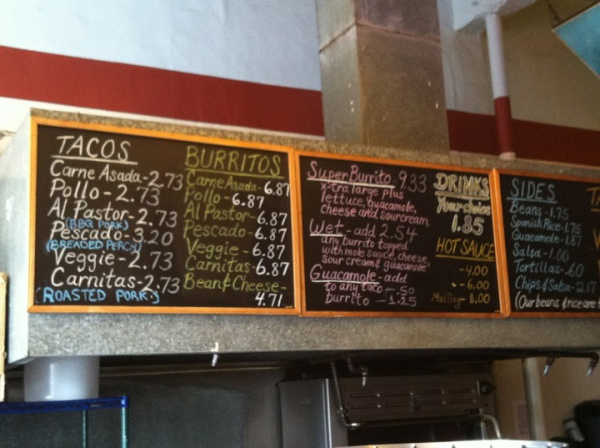 TACOS
Carne Asada - 2.73
Pollo - 2.73
Al Pastor - 2.73
(BBQ PORK)
Pescado - 3.20
(BREADED PERCH)
Veggie - 2.73
Carnitas - 2.73
(ROASTED PORK)
BURRITOS
Carne Asada - 6.87
Pollo - 6.87
Al Pastor - 6.87
Pescado - 6.87
Veggie - 6.87
Carnitas - 6.87
Bean & Cheese -
4.71
Super Burrito - 9.33
x-tra large plus
lettuce, guacamole,
cheese and sour cream
Wet - add 2.54
any burrito topped
with mole sauce, cheese,
sour cream & guacamole
Guacamole - add
to any taco - .50
burrito - 1.25
DRINKS
Your choice
1.85
HOT SAUCE
- 4.00
- 6.00
Mad Dog - 8.00
SIDES
Beans - 1.75
Spanish Rice - 1.75
Guacamole - 1.87
Salsa - 1.00
Tortillas - .60
Chips & Salsa - 2.17
(Our beans & rice are